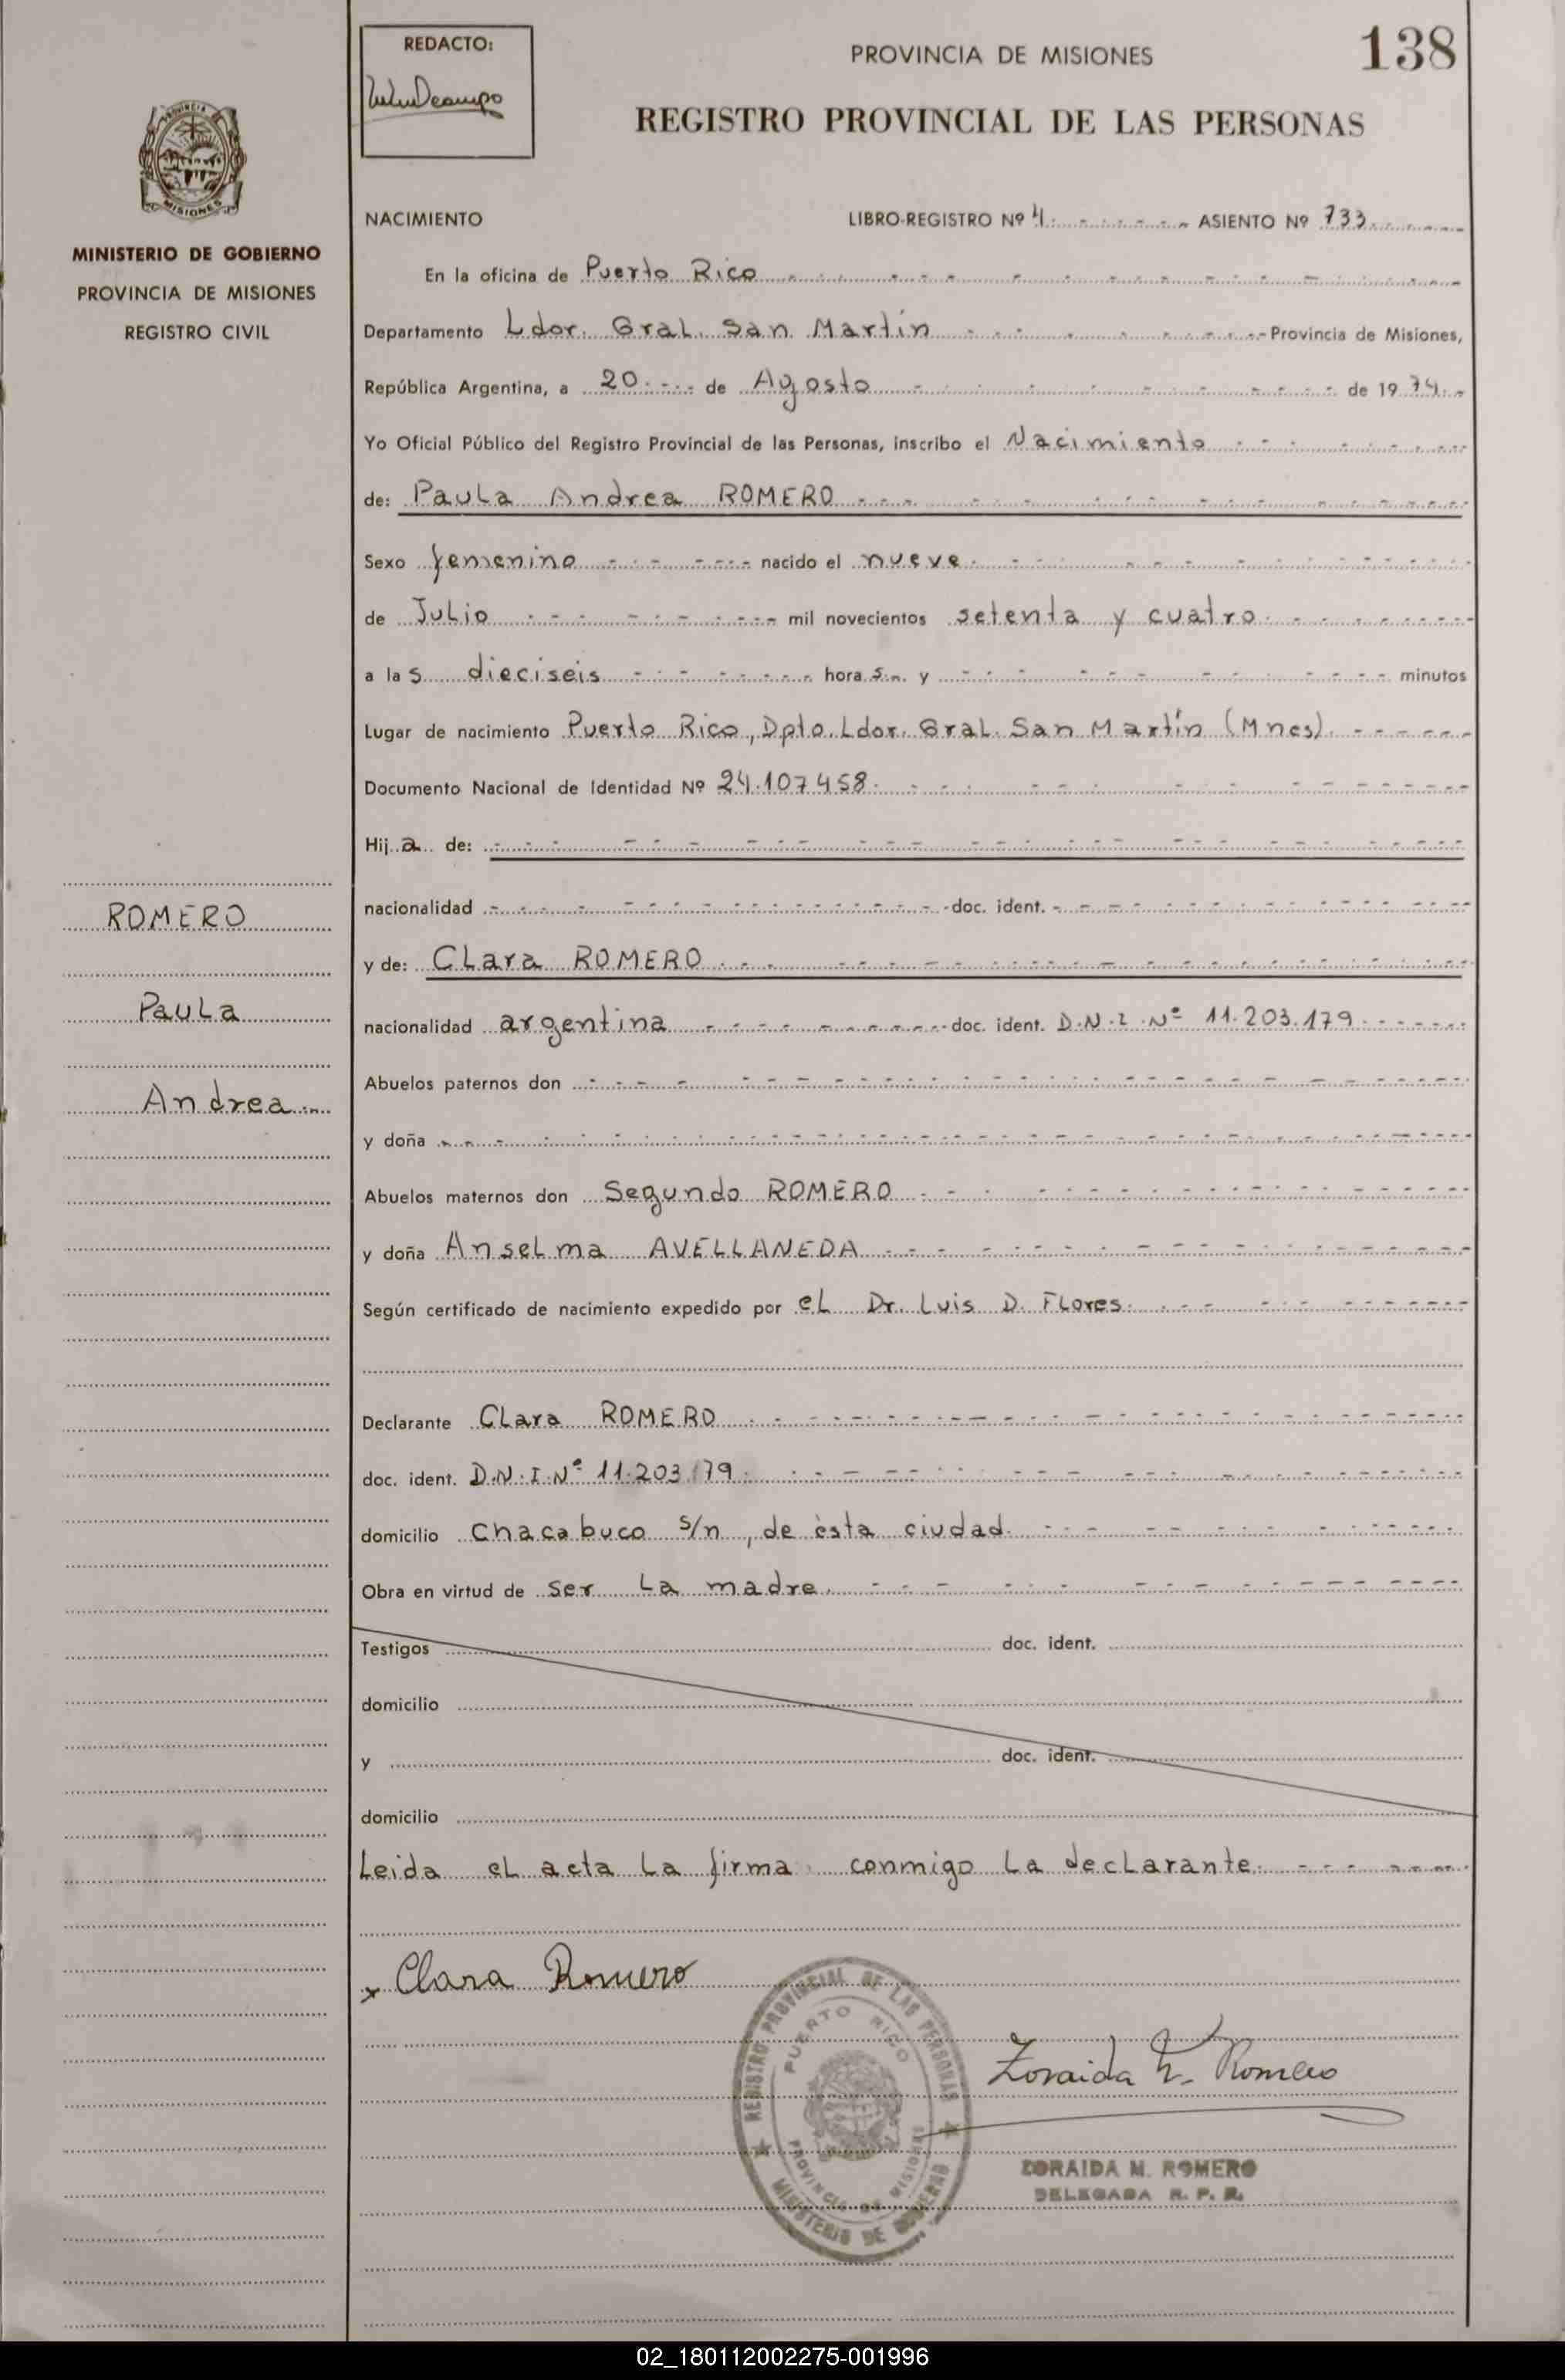 REDACTO:
PROVINCIA DE MISIONES
138
REGISTRO PROVINCIAL DE LAS PERSONAS
MISIONES
MINISTERIO DE GOBIERNO
PROVINCIA DE MISIONES
REGISTRO CIVIL
NACIMIENTO LIBRO-REGISTRO Nº 4 ASIENTO Nº 733
En la oficina de Puerto Rico
Departamento Ldor. Gral. San Martín Provincia de Misiones,
República Argentina, a 20 de Agosto de 1974
Yo Oficial Público del Registro Provincial de las Personas, inscribo el Nacimiento
de: Paula Andrea ROMERO
Sexo femenino nacido el nueve
de Julio mil novecientos setenta y cuatro
a las dieciseis horas. y minutos
Lugar de nacimiento Puerto Rico, Dpto. Ldor. Gral. San Martín (Mnes).
Documento Nacional de Identidad Nº 24.107458.
Hija de:
nacionalidad doc. ident.
y de: Clara ROMERO
nacionalidad argentina doc. ident. D.N.I. Nº 11.203.179
Abuelos paternos don
y doña
Abuelos maternos don Segundo ROMERO
y doña Anselma AVELLANEDA
Según certificado de nacimiento expedido por el Dr. Luis D. Flores.
Declarante Clara ROMERO
doc. ident. D.N.I. Nº 11.203.179
domicilio Chacabuco s/n, de ésta ciudad.
Obra en virtud de ser la madre.
Testigos doc. ident.
domicilio
y doc. ident.
domicilio
Leida el acta la firma conmigo la declarante.
x Clara Romero
ROMERO
Paula
Andrea
REGISTRO PROVINCIAL DE LAS PERSONAS
PUERTO RICO
PROVINCIA DE MISIONES
MINISTERIO DE GOBIERNO
Zoraida M. Romero
ZORAIDA M. ROMERO
DELEGADA R. P. P.
02_180112002275-001996